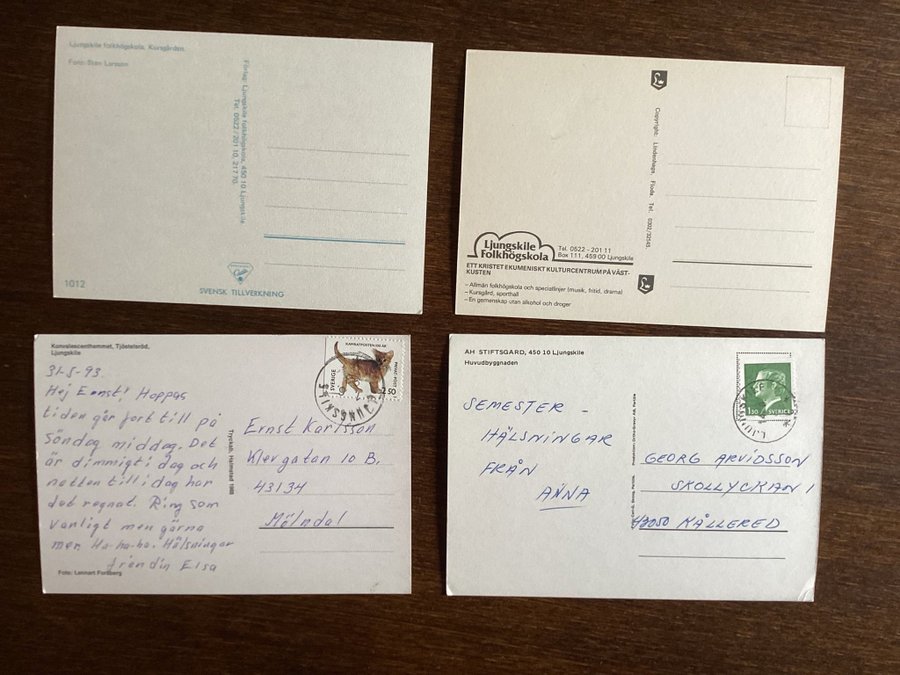 Ljungskile folkhögskola, Kursgården.
Foto: Sten Larsson
Förlag: Ljungskile folkhögskola, 450 10 Ljungskile
Tel. 0522/201 10, 217 70.
1012
SVENSK TILLVERKNING
Copyright: Lindenhags, Floda. Tel. 0302/32543.
Ljungskile
Folkhögskola
Tel. 0522 - 201 11
Box 111, 459 00 Ljungskile
ETT KRISTET EKUMENISKT KULTURCENTRUM PÅ VÄST-
KUSTEN
– Allmän folkhögskola och speciallinjer (musik, fritid, drama)
– Kursgård, sporthall
– En gemenskap utan alkohol och droger
Konvalescenthemmet, Tjöstelsröd,
Ljungskile
31-5-93.
Hej Ernst! Hoppas
tiden går fort till på
Söndag middag. Det
är dimmigt i dag och
natten till i dag har
det regnat. Ring som
vanligt men gärna
mer. Ha-ha-ha. Hälsningar
från din Elsa
Foto: Lennart Forsberg
Tryckab, Halmstad 1988
SVERIGE
2.50
LJUNGSKILE
Ernst Karlsson
Klevgatan 10 B.
43134
Mölndal
AH STIFTSGÅRD, 450 10 Ljungskile
Huvudbyggnaden
SEMESTER -
HÄLSNINGAR
FRÅN
ANNA
130 SVERIGE
GEORG ARVIDSSON
SKOLLYCKAN 1
43050 KÅLLERED